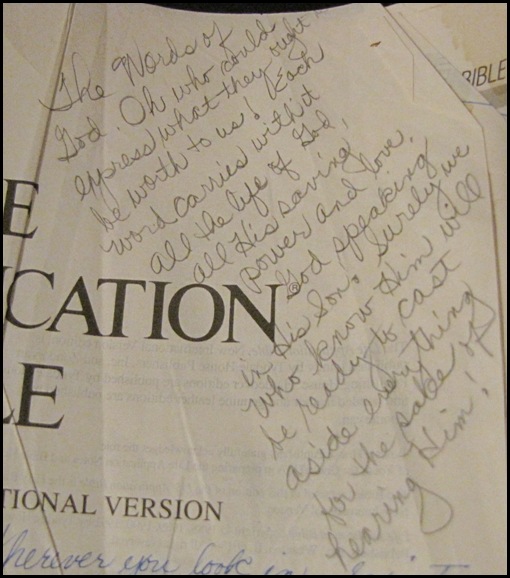 The Words of
God. Oh who could
express what they ought
be worth to us! Each
word carries with it
all the life of God,
all His saving
power and love.
God speaking
in His Son. Surely we
who know Him will
be ready to cast
aside everything
for the sake of
hearing Him!
BIBLE
E
CATION®
LE
TIONAL VERSION
Wherever you look in